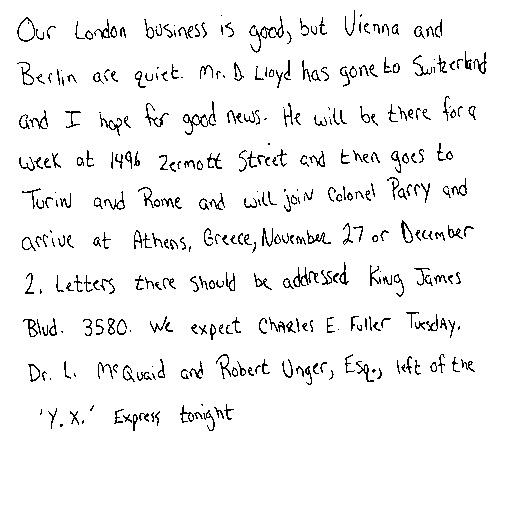 Our London business is good, but Vienna and
Berlin are quiet. Mr. D. Lloyd has gone to Switzerland
and I hope for good news. He will be there for a
week at 1496 Zermott Street and then goes to
Turin and Rome and will join Colonel Parry and
arrive at Athens, Greece, November 27 or December
2. Letters there should be addressed King James
Blvd. 3580. We expect Charles E. Fuller Tuesday.
Dr. L. McQuaid and Robert Unger, Esq., left of the
'Y.X.' Express tonight